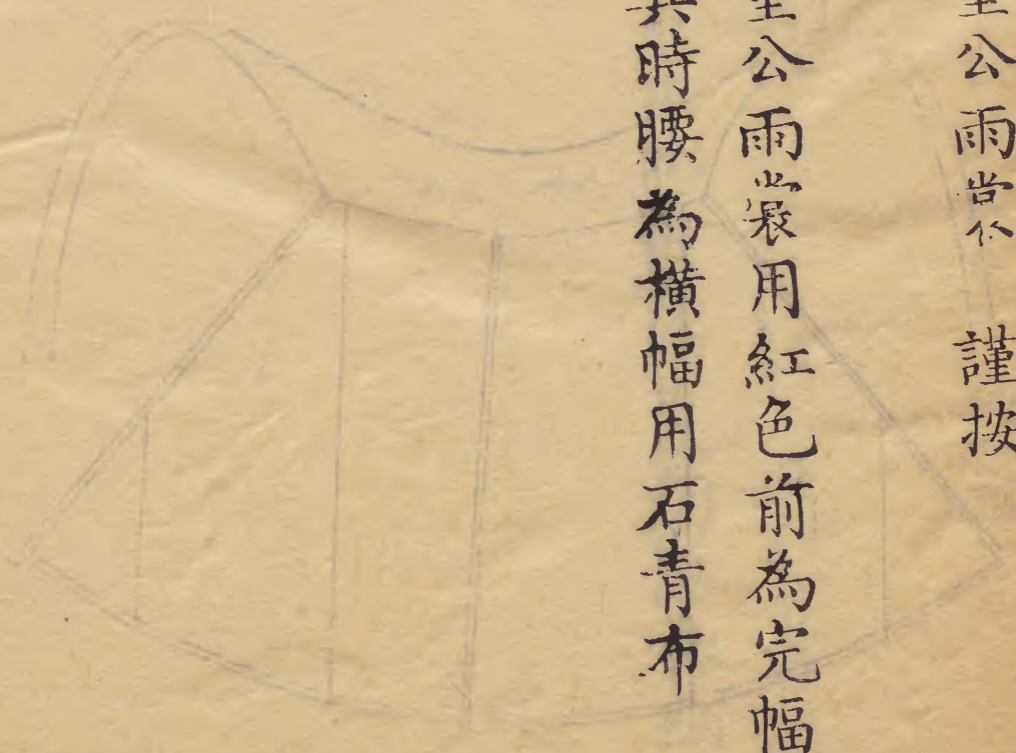 公雨裳 謹按
公雨裳用紅色前為完幅
時腰為橫幅用石青布